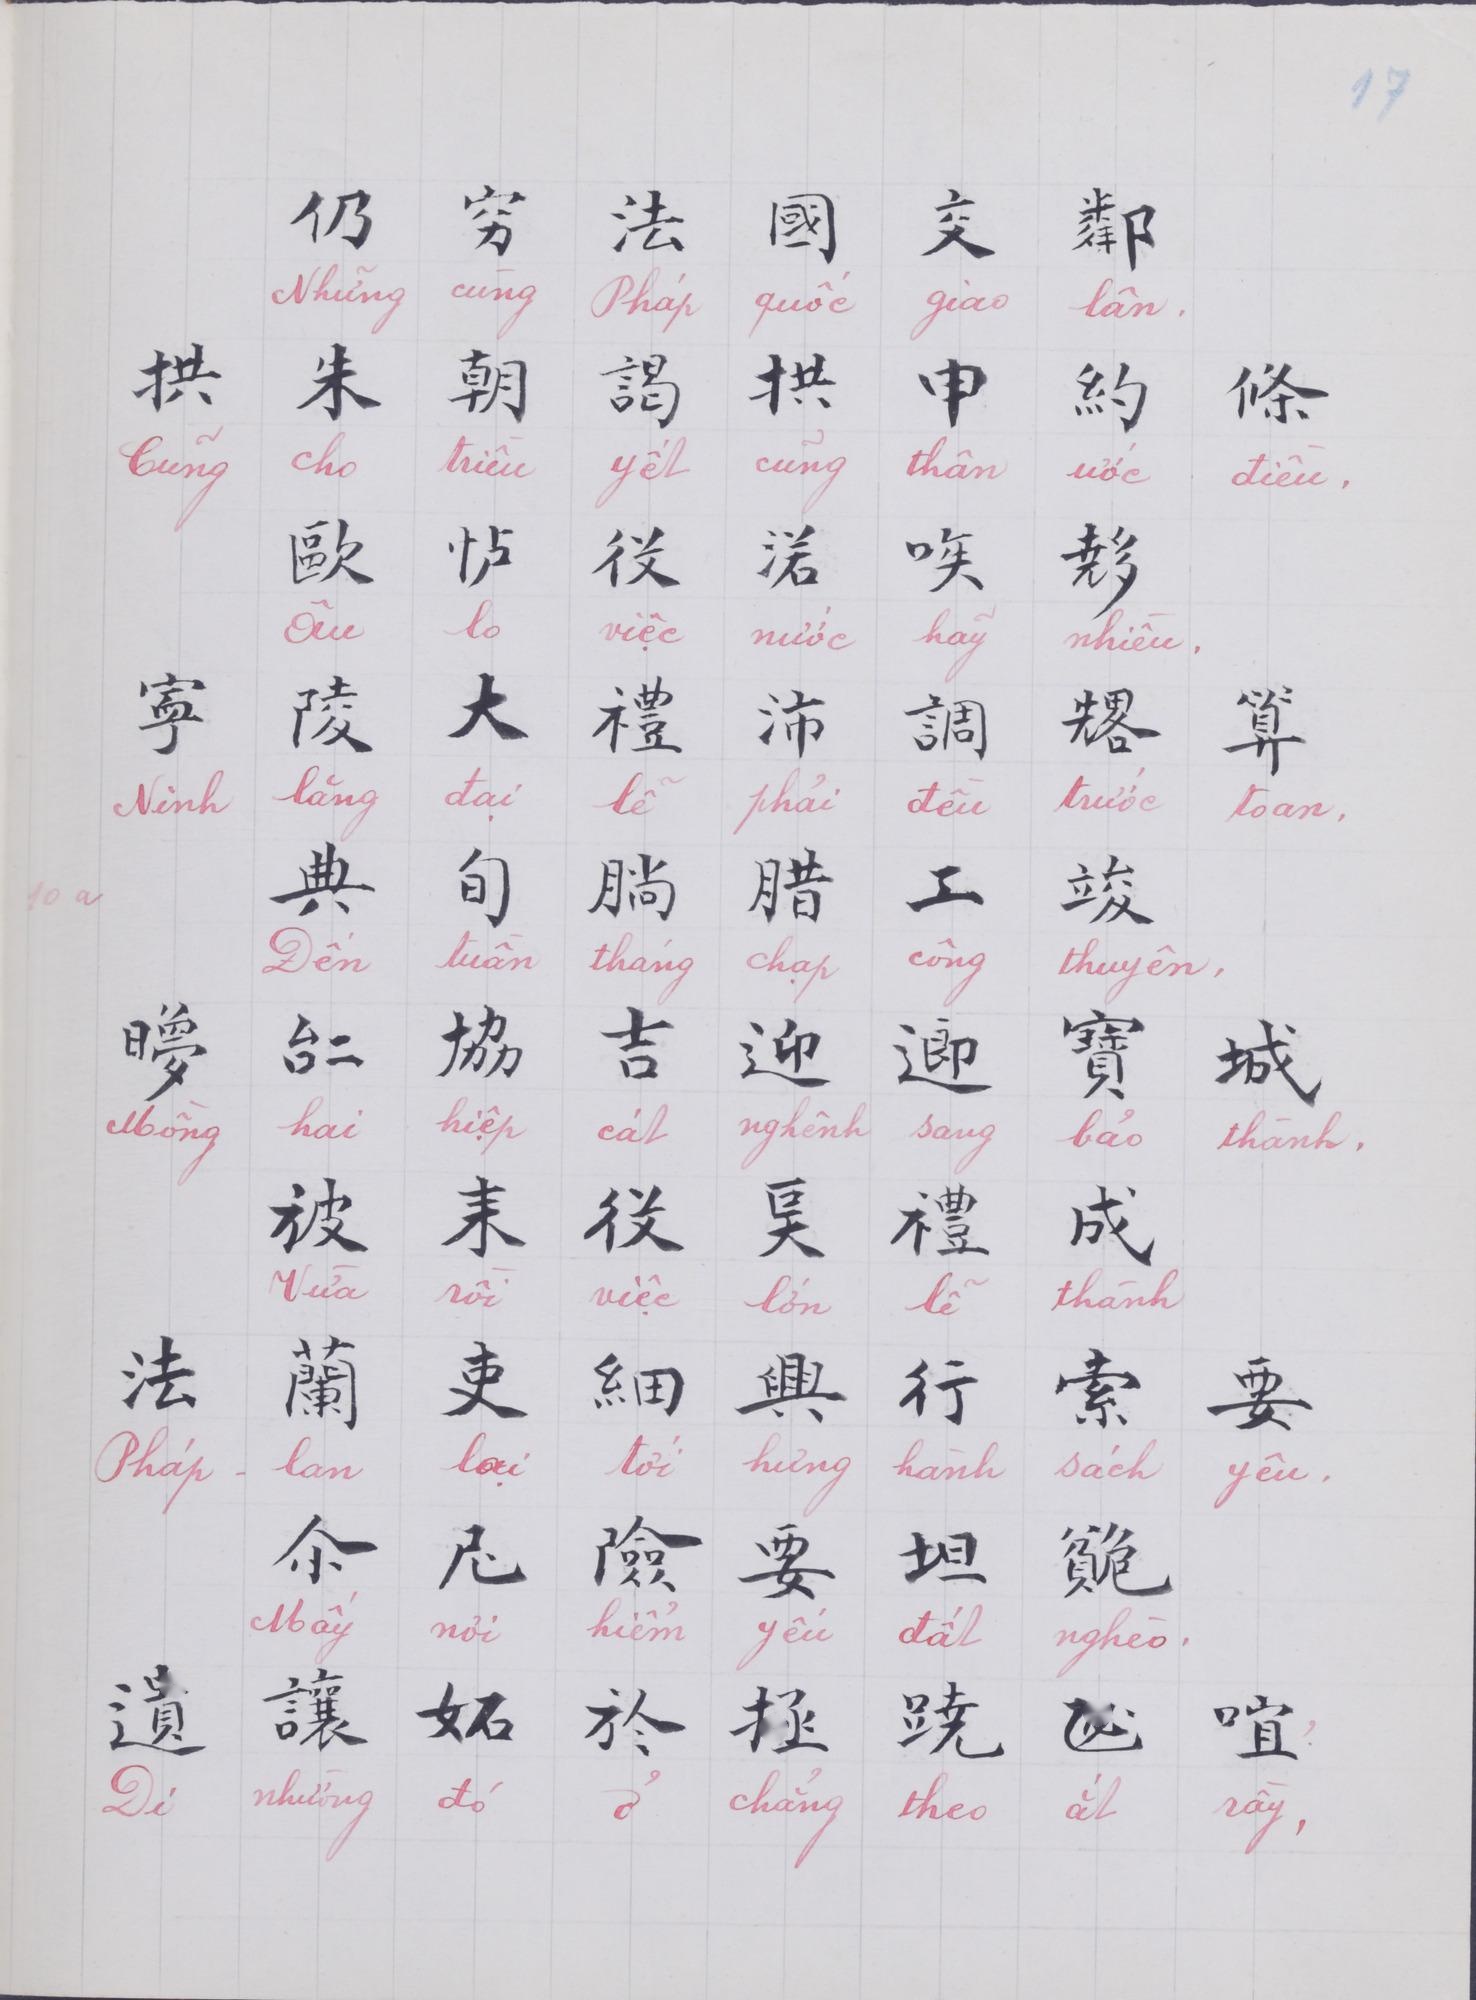 17
仍 穷 法 國 交 鄰
Những cùng Pháp quốc giao lân.
拱 朱 朝 謁 拱 申 約 條
Cũng cho triều yết cũng thân ước điều.
歐 怗 役 渃 唉
Âu lo việc nước hãy nhiều.
寧 陵 大 禮 沛 調 算
Ninh lăng đại lễ phải đều trước toan.
典 旬 腊 工 竣
10 a
Đến tuần tháng chạp công thuyên.
協 吉 迎 寶 城
Mồng hai hiệp cát nghênh sang bảo thành.
被 耒 役 禮 成
Vừa rồi việc lớn lễ thành
法 蘭 吏 細 興 行 索 要
Pháp - lan lại tới hưng hành sách yêu.
尒 險 要 坦
Mấy nơi hiểm yếu đất nghèo.
遺 讓 妬 於 拯 蹺 喧
Di nhường đó ở chẳng theo ắt rầy,